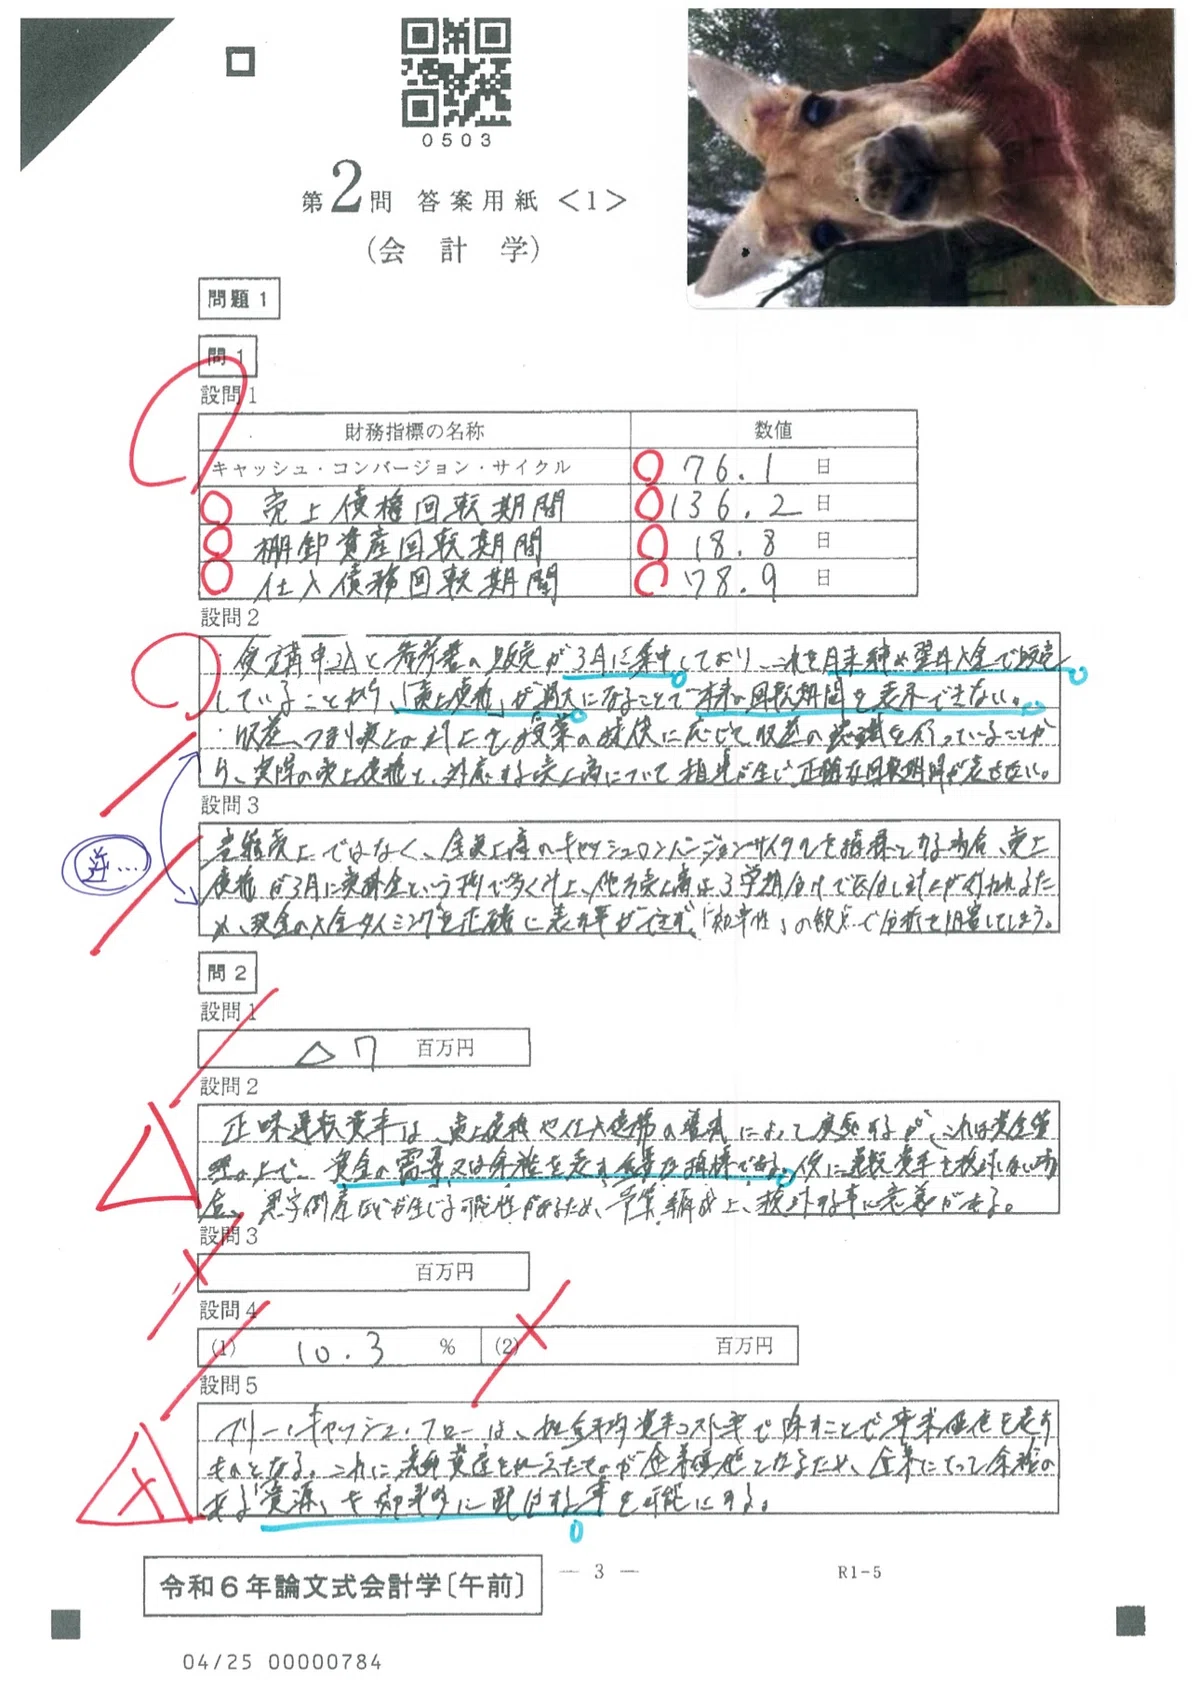 0503
第2問 答案用紙<1>
(会計学)
問題1
問1
設問1
財務指標の名称 数値
キャッシュ・コンバージョン・サイクル 76.1 日
売上債権回転期間 136.2 日
棚卸資産回転期間 18.8 日
仕入債務回転期間 78.9 日
設問2
・受講申込と参考書の販売が3月に集中しており、これを月末締め翌月入金で販売
していることから、「売上債権」が過大になることで本来の回転期間を表示できない。
・収益、つまり売上の計上を授業の提供に応じて収益の認識を行っていることか
ら、実際の売上債権と、対応する売上高について相違が生じ正確な回転期間が表せない。
設問3
ではなく、全売上高のキャッシュコンバージョンサイクルを指標とする場合、売上
債権が3月に という形で多く計上、他方売上高は3学期分けで区分し計上が行われるた
め、現金の入金タイミングを正確に表す事ができず、「効率性」の観点で分析を阻害してしまう。
逆…
問2
設問1
△7 百万円
設問2
正味運転資本は、売上債権や仕入債務の増減によって変動するが、これは資金管
理の上で、資金の需要又は余裕を表す重要な指標である。仮に運転資本を検討しない場
合、黒字倒産などが生じる可能性があるため、予算編成上、検討する事に意義がある。
設問3
百万円
設問4
(1) 10.3 % (2) 百万円
設問5
フリー・キャッシュ・フローは、加重平均資本コスト率で除すことで事業価値を表す
ものとなる。これに 資産を加えたものが企業価値となるため、企業にとって余裕の
ある「資源」を に配分する事を可能にする。
令和6年論文式会計学〔午前〕
— 3 —
R1-5
04/25 00000784